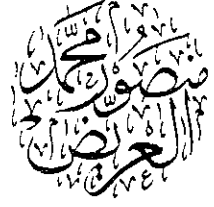 منصور محمد
العريض